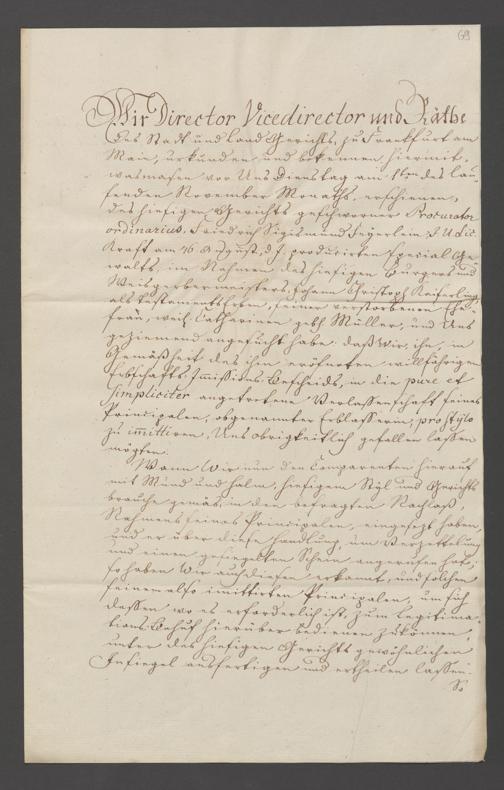 69
Wir Director Vicedirector und Räthe
des Stadt und Land Gerichts, zu Frankfurt am
Main, urkunden und bekennen hiermit,
wasmasen vor Uns Dienstag am 1ten des lau-
fenden November Monaths, erschienen,
des hiesigen Gerichts geschworner Procurator
ordinarius, Friedrich Sigismund Feyerlein J.U.Lic.
Kraft am 16 August, d.J. produzirten Special Ge-
walts, im Nahmen des hiesigen Burgers und
Weisgerbermeisters, Johann Christoph Keiferling,
als testamentserben, seiner verstorbenen Ehe-
frau, weil. Catharinen gebh Müller, und Uns
geziemend angesucht habe: daß Wir, ihn, in
Gemäßheit des ihm eröfneten willfährigen
Erbschafts Immissions Bescheids, in die pure et
simpliciter angetretene Verlassenschaft seines
Principalen, obgenannter Erblasserin, pro stylo
zu imittiren, Uns obrigkeitlich gefallen lassen
mögten.
Wann Wir nun den Comparenten hierauf
mit Mund und Halm, hiesigem Styl und Gerichts
brauche gemäs, in den befragten Nachlaß,
Nahmens seines Principalen, eingesezt haben,
und er über diese Handlung, um Verzettelung
und einen gesiegelten Schein angerufen hat;
so haben Wir auch diesen erkannt, und solchen
seinem also imittirten Principalen, um sich
dessen wo es erforderlich ist, zum Legitima-
tions Behuf hierüber bedienen zu können,
unter des hiesigen Gerichts gewöhnlichen
Insiegel ausfertigen und ertheilen lassen.
So